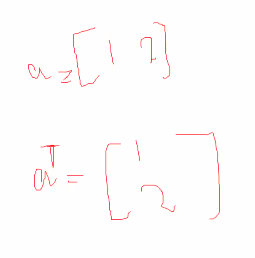 a = [1 2]
aᵀ = [1
2]